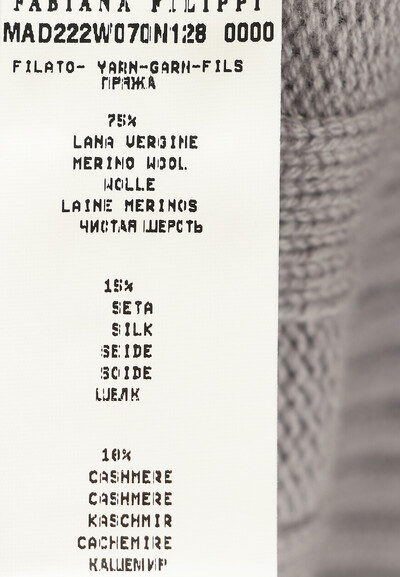 FABIANA FILIPPI
MAD222W070N128 0000
FILATO- YARN-GARN-FILS
ПРЯЖА
75%
LANA VERGINE
MERINO WOOL
WOLLE
LAINE MERINOS
ЧИСТАЯ ШЕРСТЬ
15%
SETA
SILK
SEIDE
SOIDE
ШЕЛК
10%
CASHMERE
CASHMERE
KASCHMIR
CACHEMIRE
КАШЕМИР